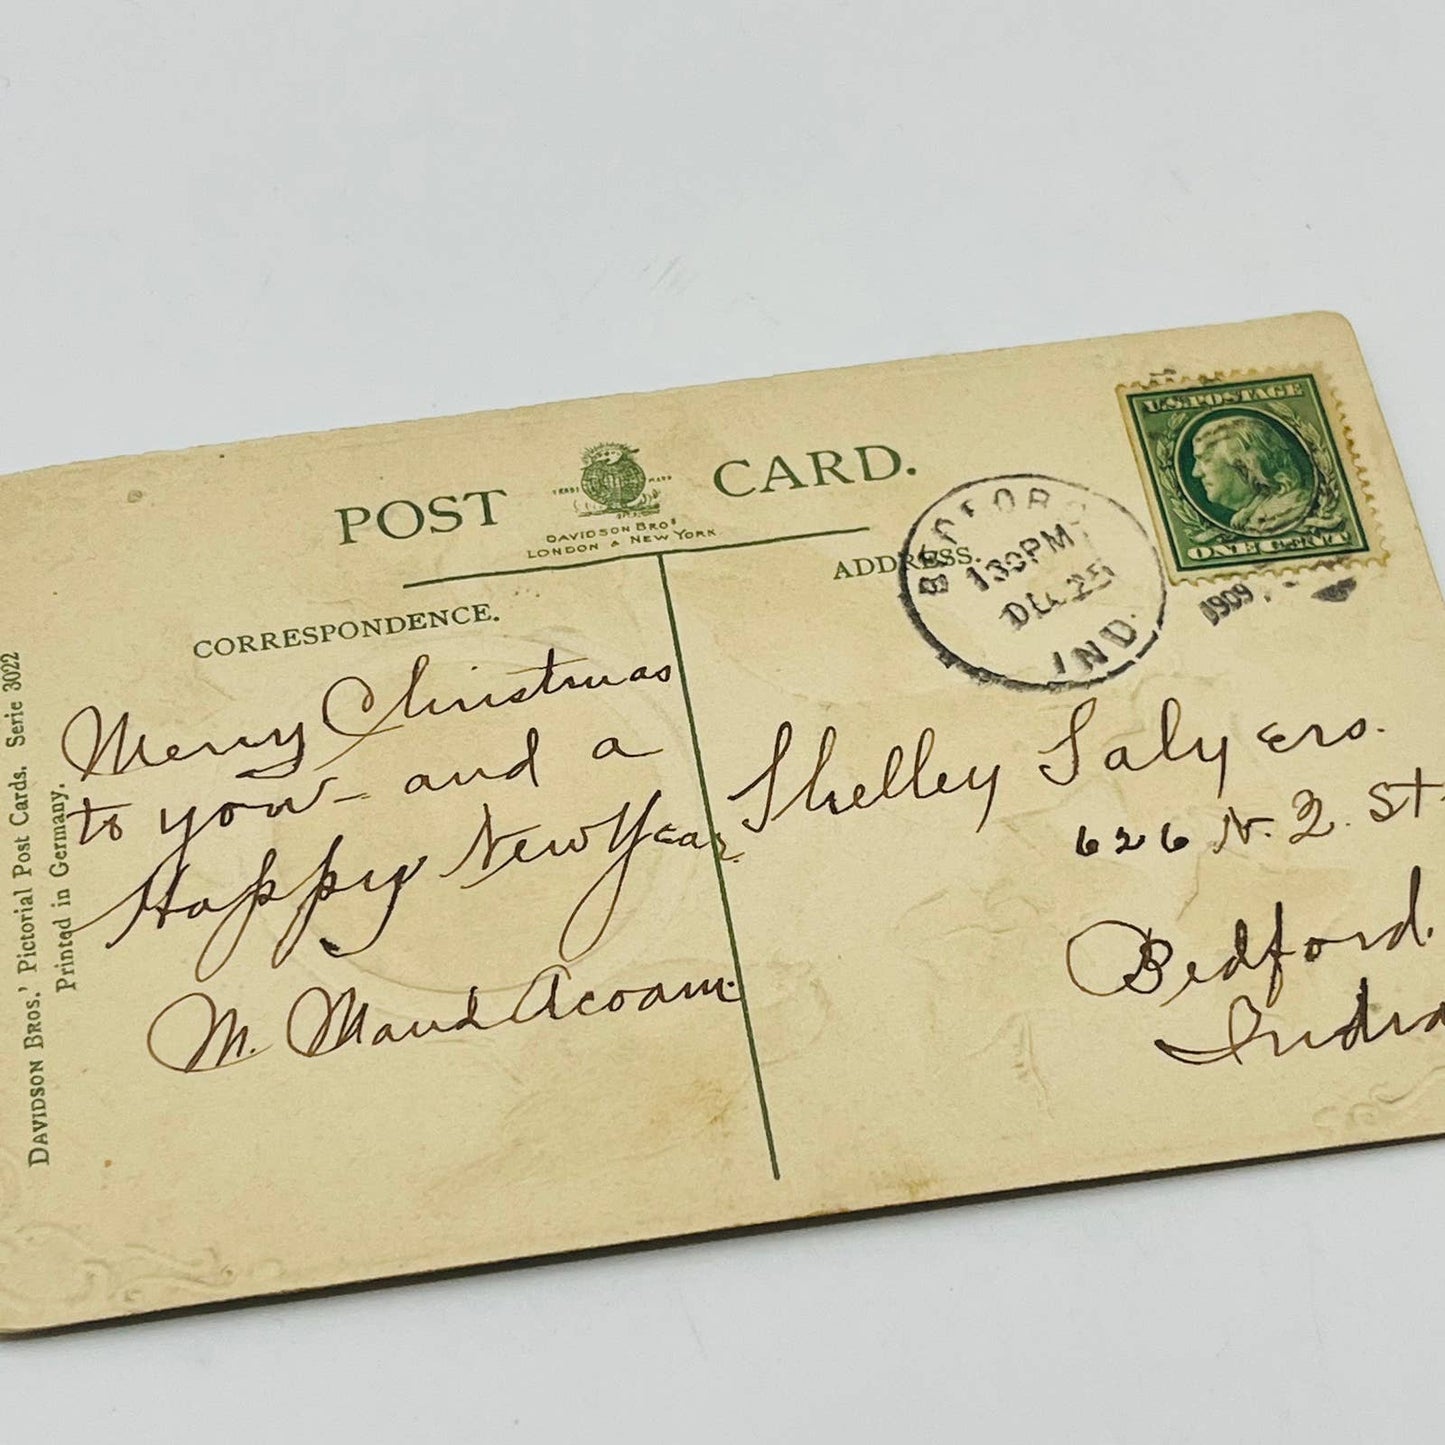 POST CARD.
TRADE MARK
DAVIDSON BROS
LONDON & NEW YORK
CORRESPONDENCE.
ADDRESS.
U.S. POSTAGE
ONE CENT
BEDFORD
130PM
DEC 25
1909
IND.
Merry Christmas
to you - and a
Happy New Year.
M. Maud
Shelley Salyers.
626 N. 2. St.
Bedford.
India
DAVIDSON BROS.' Pictorial Post Cards. Serie 3022
Printed in Germany.